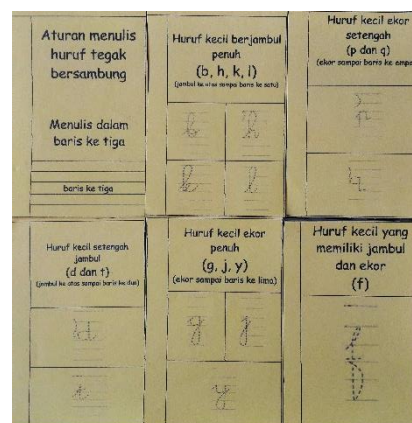 Aturan menulis
huruf tegak
bersambung
Menulis dalam
baris ke tiga
baris ke tiga
Huruf kecil berjambul
penuh
(b, h, k, l)
(jambul ke atas sampai baris ke satu)
b
h
k
l
Huruf kecil ekor
setengah
(p dan q)
(ekor sampai baris ke empa
p
q
Huruf kecil setengah
jambul
(d dan t)
(jambul ke atas sampai baris ke dua)
d
t
Huruf kecil ekor
penuh
(g, j, y)
(ekor sampai baris ke lima)
g
j
y
Huruf kecil yang
memiliki jambul
dan ekor
(f)
f